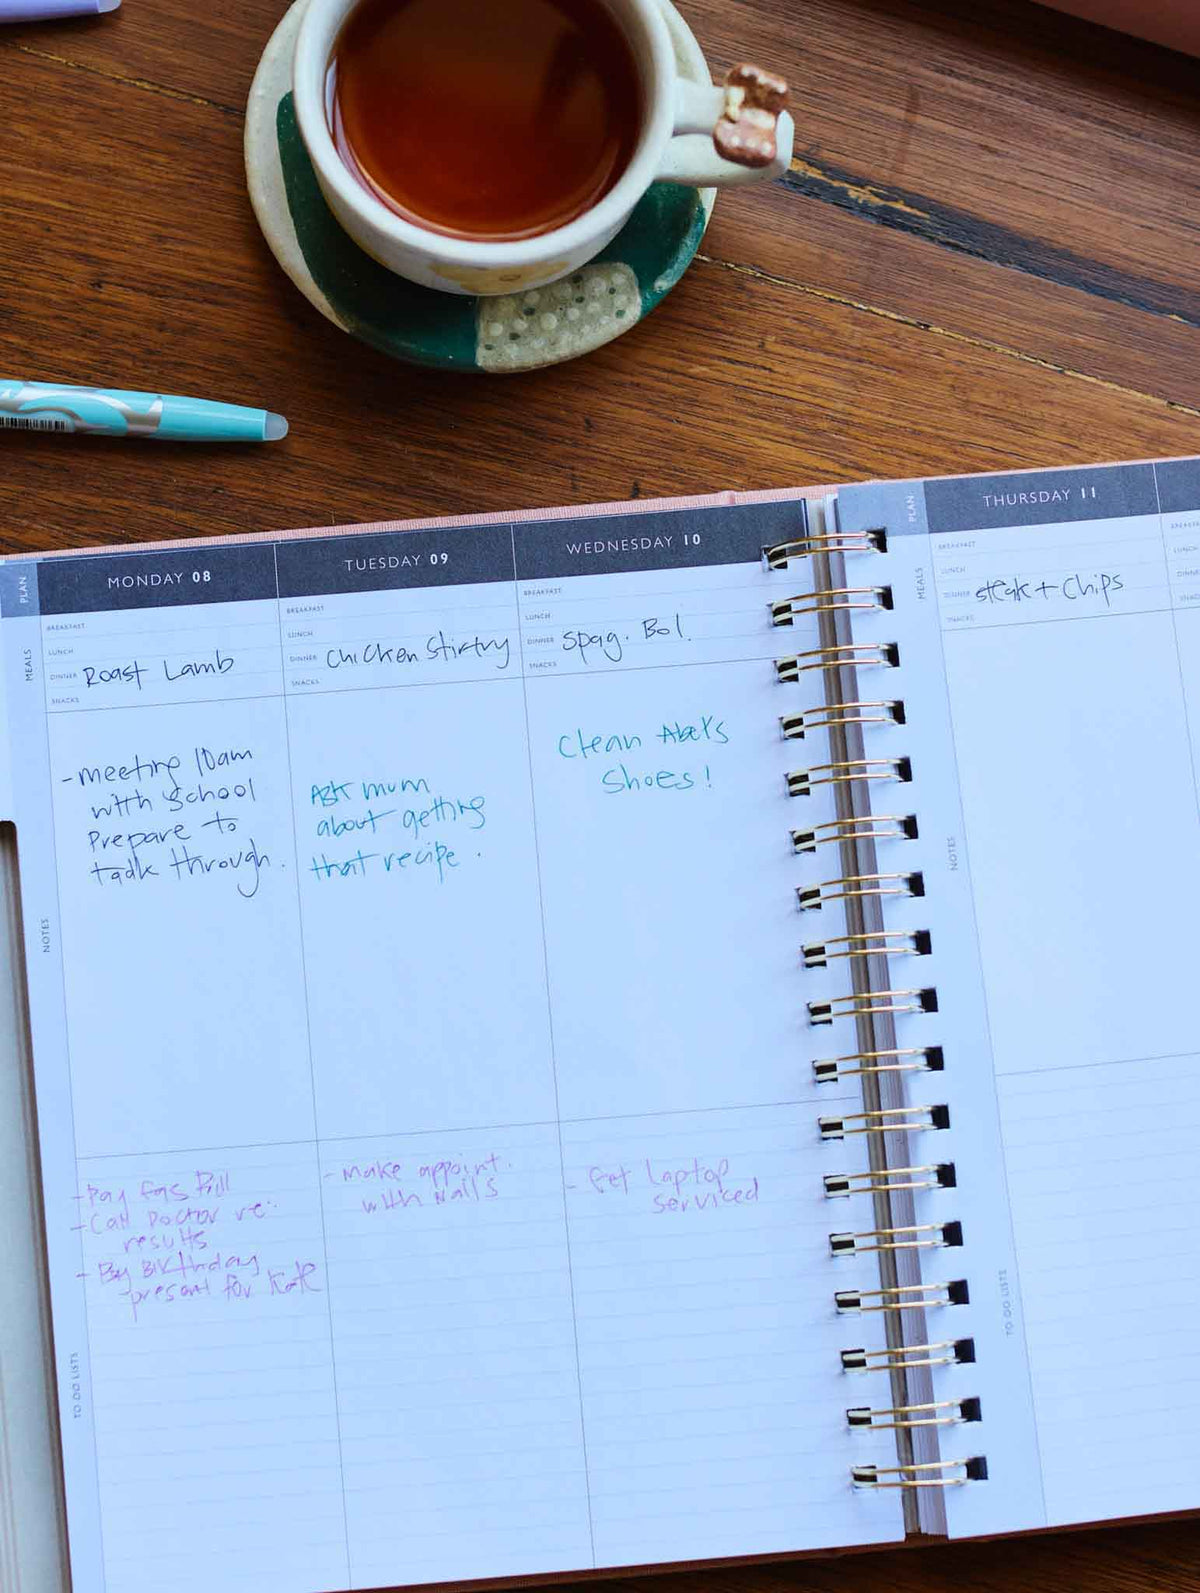 PLAN
MONDAY 08
TUESDAY 09
WEDNESDAY 10
MEALS
BREAKFAST
LUNCH
DINNER Roast Lamb
SNACKS
BREAKFAST
LUNCH
DINNER Chicken Stirfry
SNACKS
BREAKFAST
LUNCH
DINNER Spag. Bol.
SNACKS
NOTES
- meeting 10am
with school
Prepare to
talk through.
Ask mum
about getting
that recipe.
Clean Abel's
Shoes!
TO DO LISTS
- Pay gas Bill
- Call Doctor re:
results
- By Birthday
present for Kate
- Make appoint.
with Nails
- Get laptop
serviced
PLAN
THURSDAY 11
MEALS
BREAKFAST
LUNCH
DINNER Steak + Chips
SNACKS
NOTES
TO DO LISTS